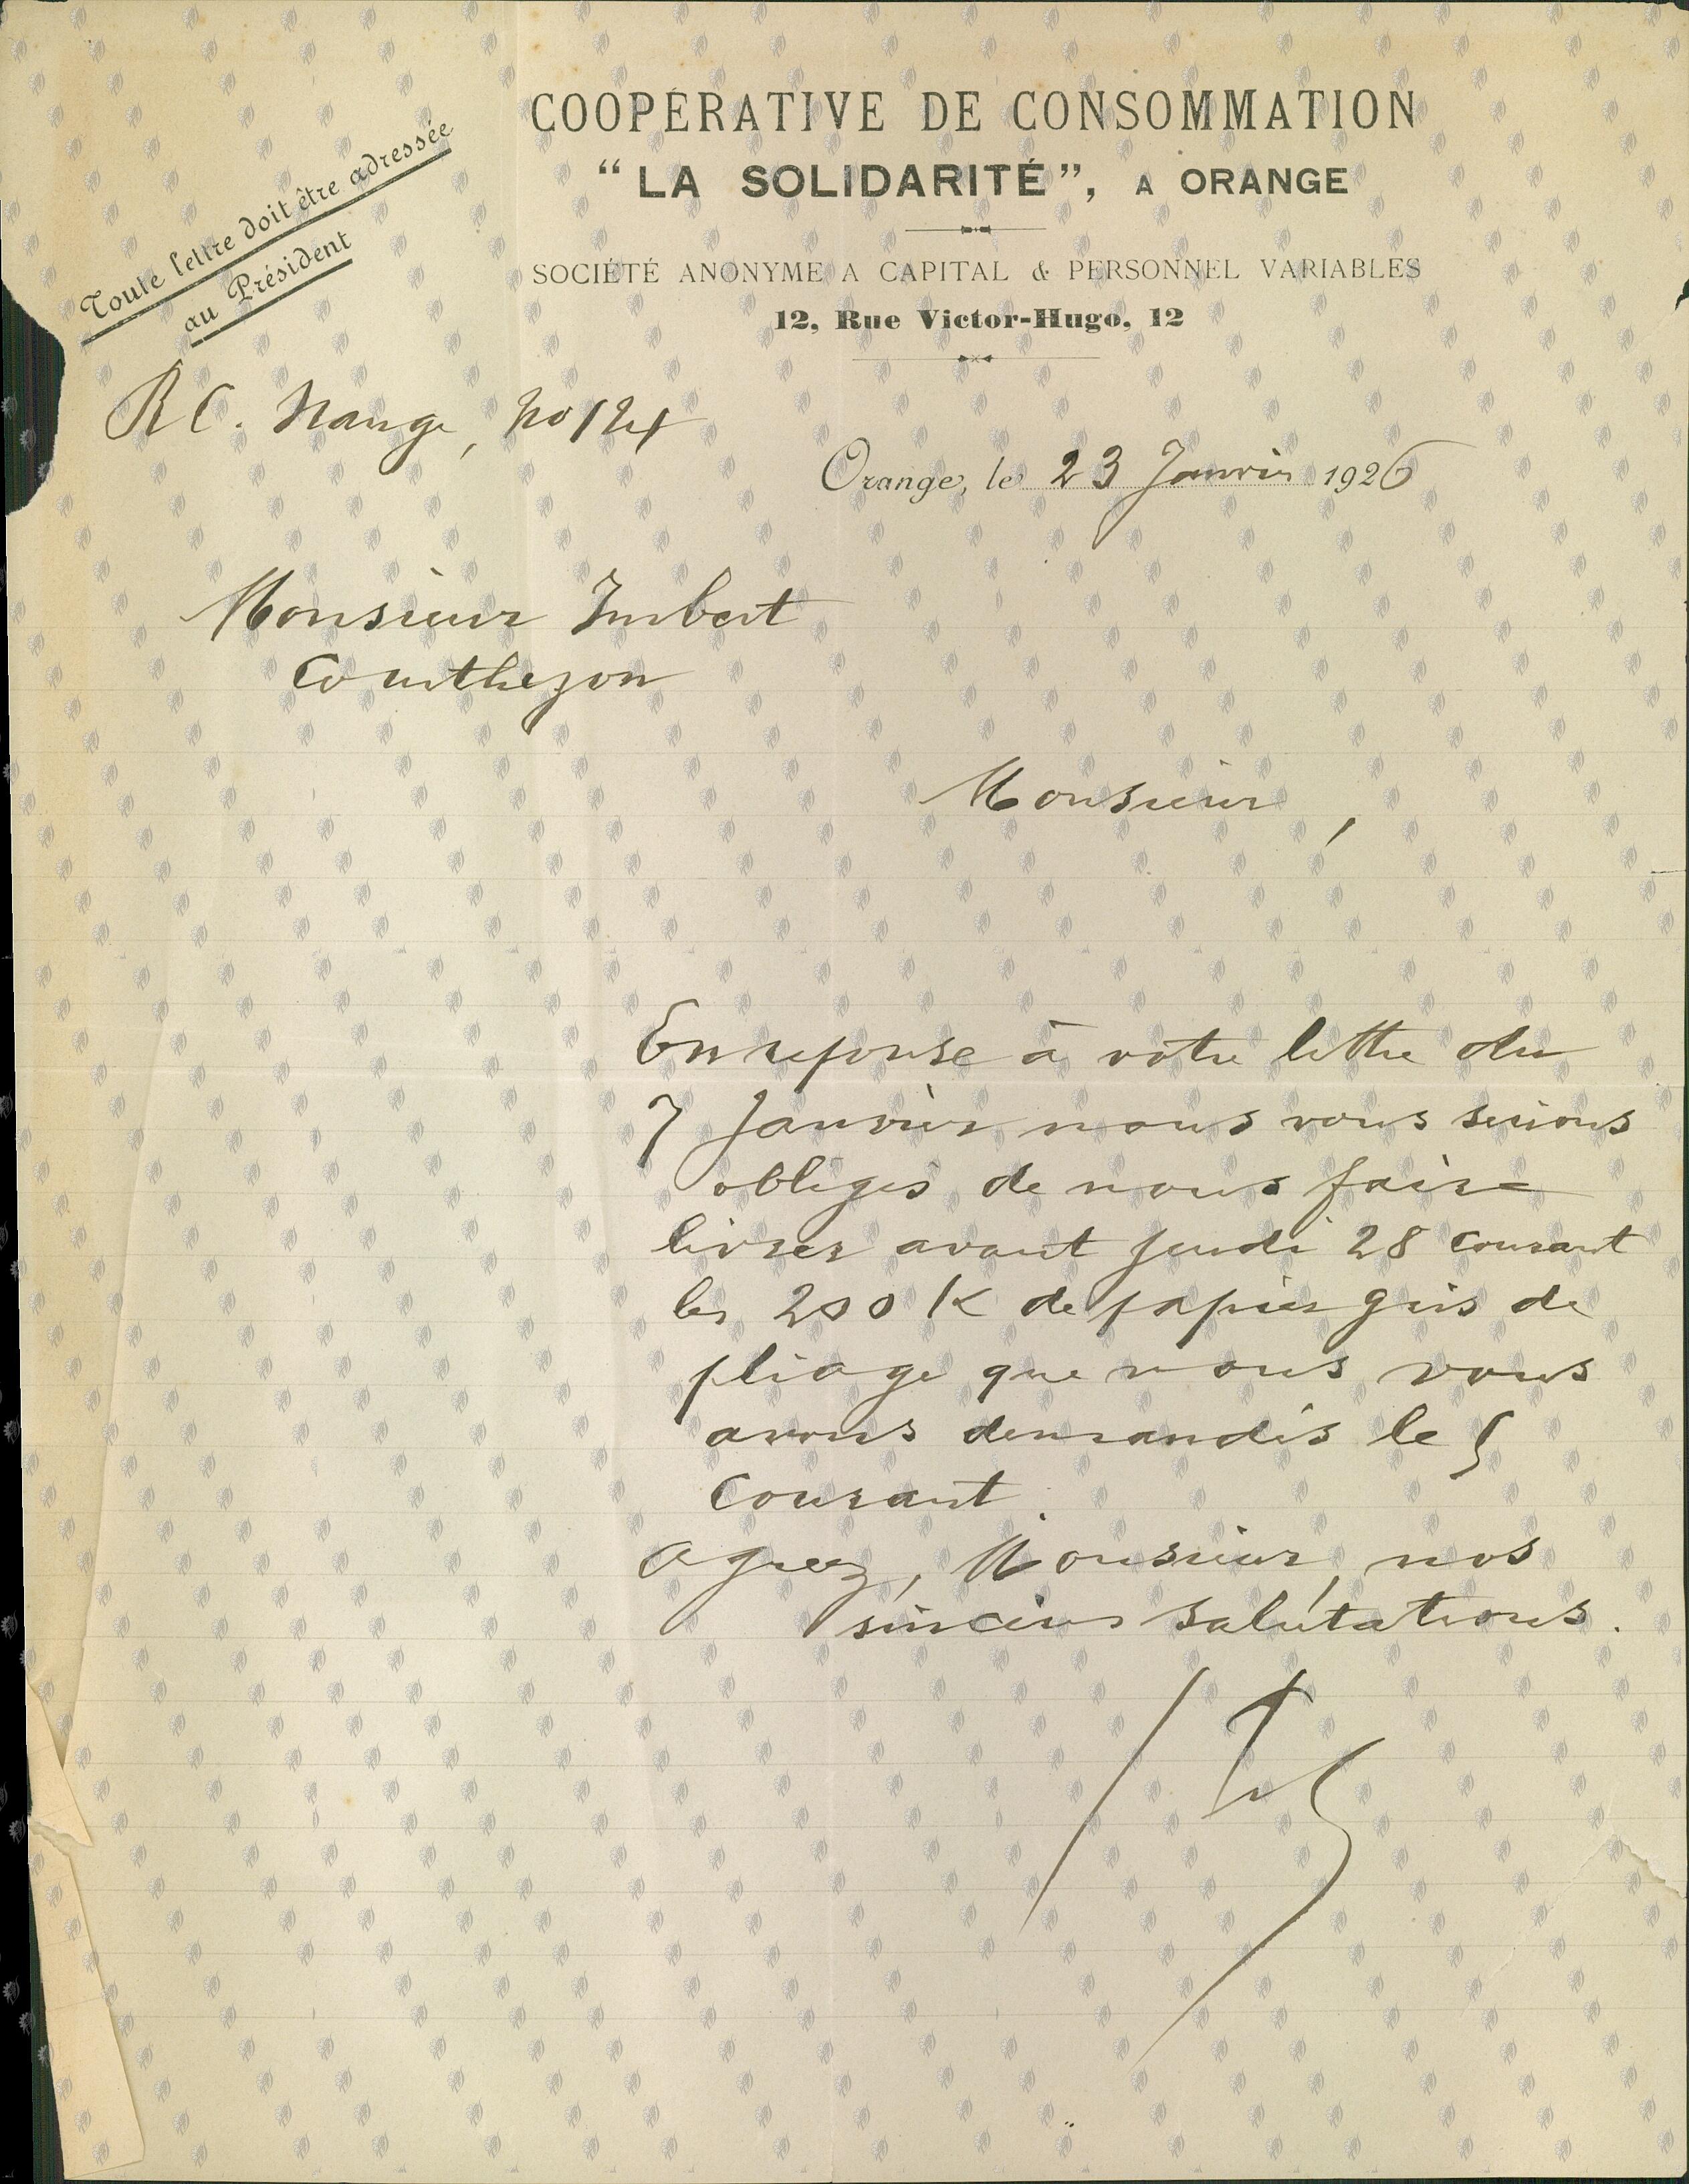 Toute lettre doit être adressée
au Président
COOPÉRATIVE DE CONSOMMATION
“LA SOLIDARITÉ”, A ORANGE
SOCIÉTÉ ANONYME A CAPITAL & PERSONNEL VARIABLES
12, Rue Victor-Hugo, 12
R C. Orange, no 124
Orange, le 23 Janvier 1926
Monsieur Imbert
Courthezon
Monsieur,
En reponse à votre lettre du
7 Janvier nous vous serions
obligés de nous faire
livrer avant jeudi 28 courant
les 200 K de papier gris de
pliage que nous vous
avons demandés le 5
Courant.
Agreez, Monsieur, nos
sincères salutations.